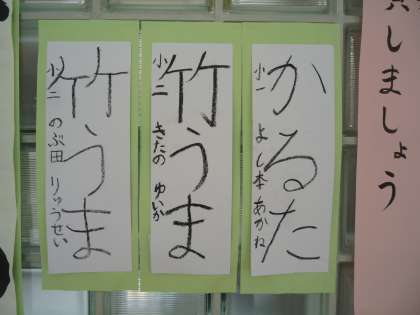 しましょう
かるた
小一 よし本 あかね
竹うま
小二 きたの ゆいか
竹うま
小二 のぶ田 りゅうせい